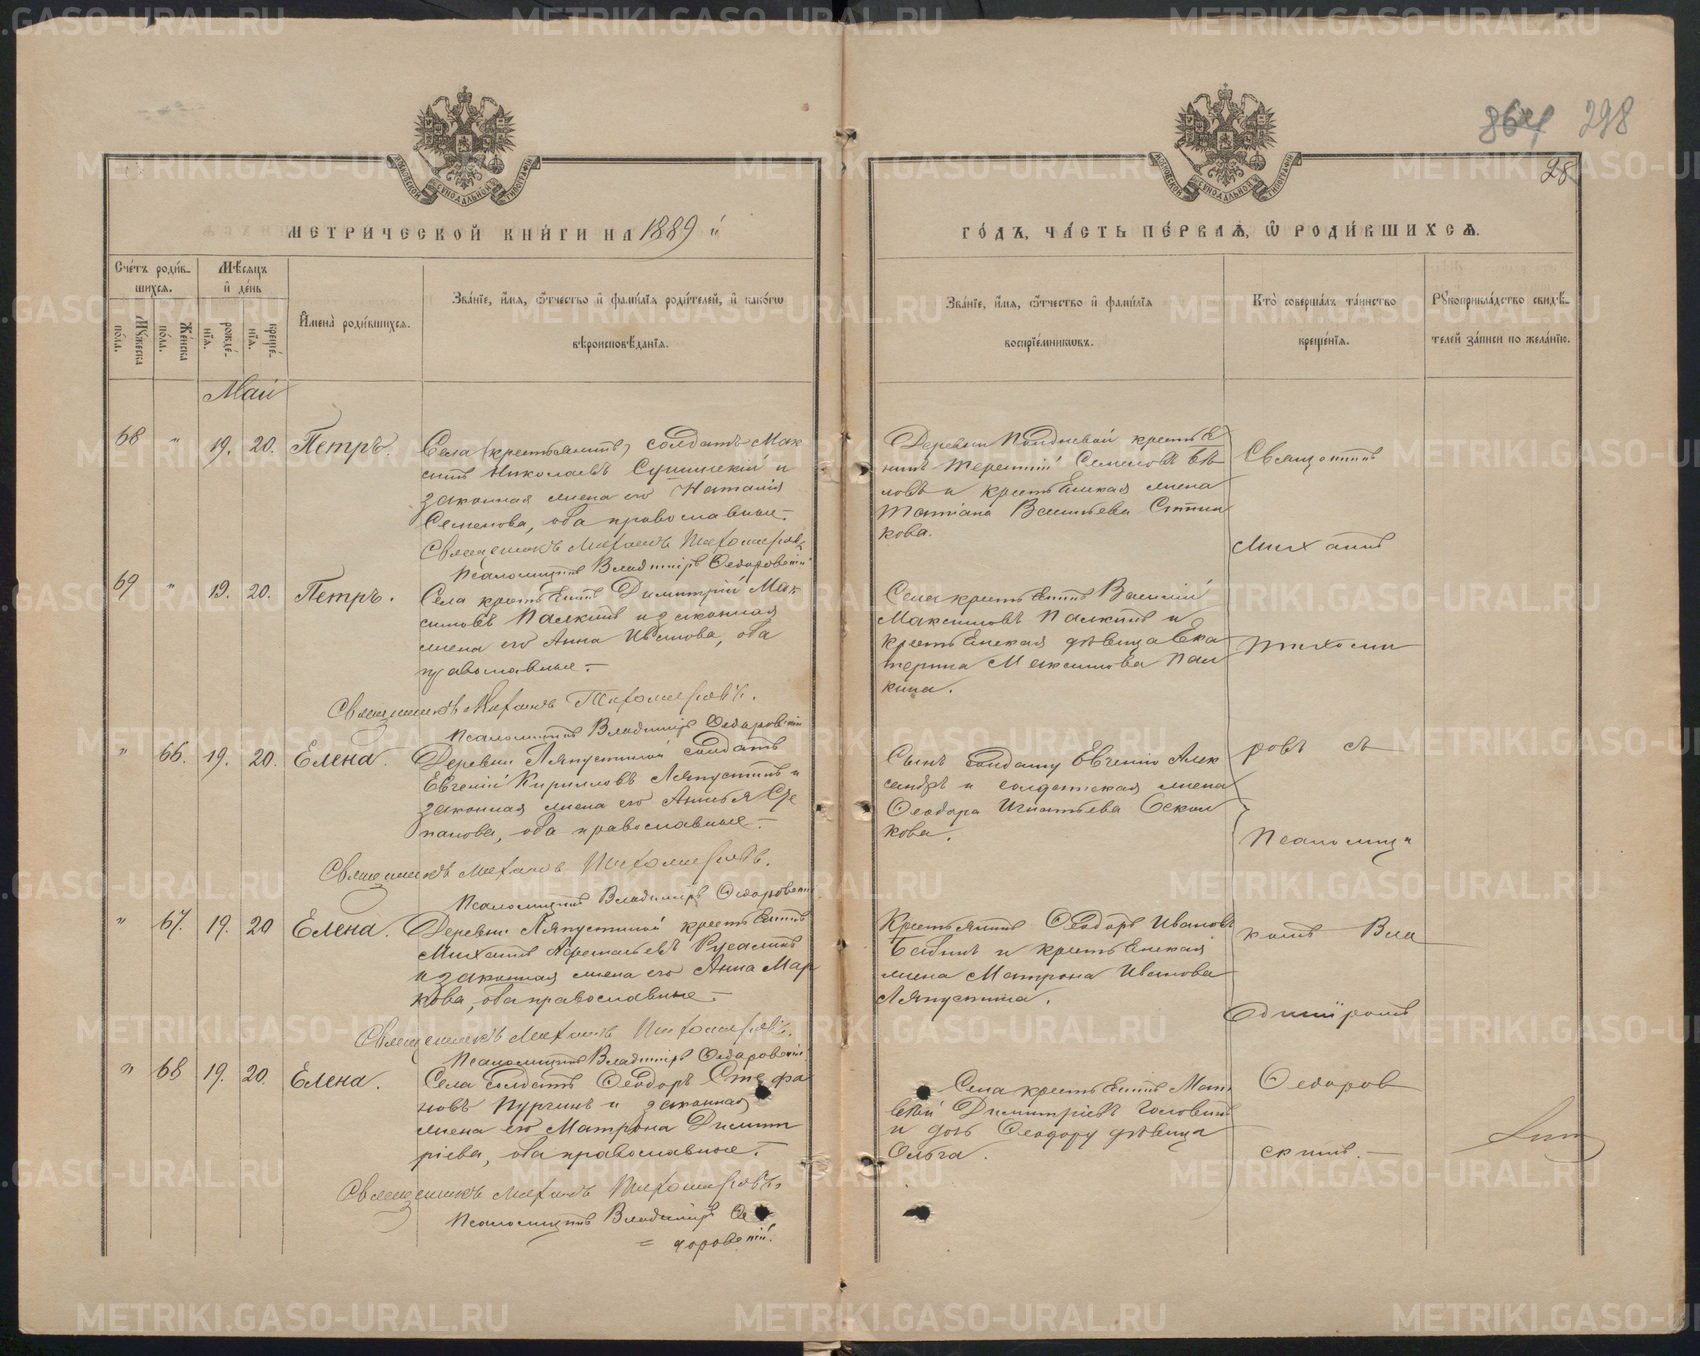 864 298
28
МЕТРИЧЕСКОЙ КНИ́ГИ НА 1889 "
ГО́ДЪ, ЧА́СТЬ ПЕ́РВАѦ, Ѡ РОДИ́ВШИХСѦ.
Сче́тъ роди́в-
шихся.
Мꙋжеска по́ла.
Же́нска по́ла.
Мѣ́сяцъ и де́нь
рожде́нїя.
креще́нїя.
Имена̀ роди́вшихся.
Зва́нїе, и́мя, ѻ҆́тчество и фами́лїя роди́телей, и како́гѡ
вѣроисповѣ́данїя.
Зва́нїе, и́мя, ѻ҆́тчество и фами́лїя
воспрїе́мникѡвъ.
Кто̀ соверша́лъ та́инство
креще́нїя.
Рꙋкоприкла́дство свидѣ́-
телей за́писи по жела́нїю.
Май
68 " 19. 20. Петръ.
Села (крестьянинъ) солдатъ Мак
симъ Николаевъ и
законная жена его Наталия
Семенова, оба православные.
Священникъ Михаилъ Тихомировъ
Псаломщикъ Владимиръ Ѳедоровский
Деревни крестья
нинъ Терентий Семеновъ
ловъ и крестьянская жена
Татиана Васильева
кова.
69 " 19. 20. Петръ.
Села крестьянинъ Димитрий Мак
симовъ Палкинъ и законная
жена его Анна Иванова, оба
православные.
Священникъ Михаилъ Тихомировъ.
Псаломщикъ Владимиръ Ѳедоровский
Села крестьянинъ Василий
Максимовъ Палкинъ и
крестьянская дѣвица Ека
терина Максимова Пал
кина.
" 66. 19. 20. Елена.
Деревни Ляпустиной солдатъ
Евгений Кирилловъ Ляпустинъ и
законная жена его Сте
панова, оба православные.
Священникъ Михаилъ Тихомировъ.
Псаломщикъ Владимиръ Ѳедоровский
Сынъ солдату Евгению Алек
сандръ и солдатская жена
Ѳеодора Игнатьева
кова.
" 67. 19. 20 Елена.
Деревни Ляпустиной крестьянинъ
Михаилъ Русалинъ
и законная жена его Анна Мар
кова, оба православные.
Священникъ Михаилъ Тихомировъ.
Псаломщикъ Владимиръ Ѳедоровский.
Крестьянинъ Ѳеодоръ Ивановъ
Бабинъ и крестьянская
жена Матрона Иванова
Ляпустина.
" 68 19. 20. Елена.
Села солдатъ Ѳеодоръ Стефа
новъ Пургинъ и законная
жена его Матрона Димит
риева, оба православные.
Священникъ Михаилъ Тихомировъ.
Псаломщикъ Владимиръ Ѳе
= доровский.
Села крестьянинъ Мат
вей Димитриевъ Головинъ
и дочь Ѳеодору дѣвица
Ольга.
Священникъ
Михаилъ
Тихоми
ровъ съ
Псаломщи
комъ Вла
димiромъ
Ѳедоров
скимъ.
METRIKI.GASO-URAL.RU